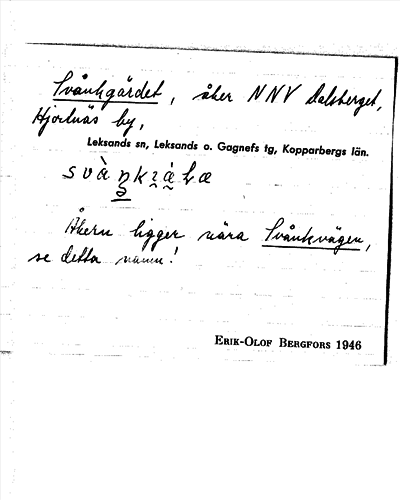 Svånkgärdet, åker NNV Dalsberget,
Hjortnäs by,
Leksands sn, Leksands o. Gagnefs tg, Kopparbergs län.
Åkern ligger nära Svånkvägen,
se detta namn!
Erik-Olof Bergfors 1946